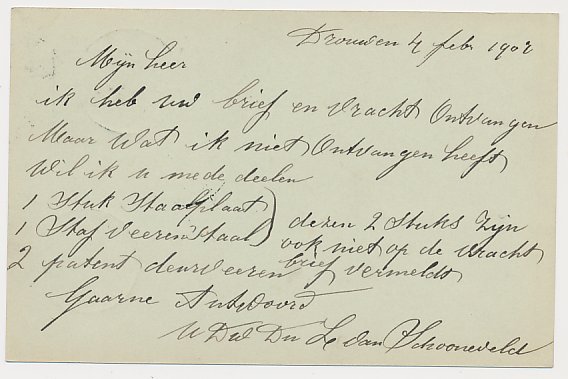 Drouwen 4 febr 1902
Mijn heer
ik heb uw brief en vracht Ontvangen
Maar Wat ik niet Ontvangen heeft
Wil ik u mede deelen
1 Stuk Staalplaat
1 Staf veerenstaal
) deren 2 Stuks Zijn
ook niet op de vracht
2 patent deurveeren brief vermeldt
Gaarne Antwoord
U Dw Dn H van Schooneveld